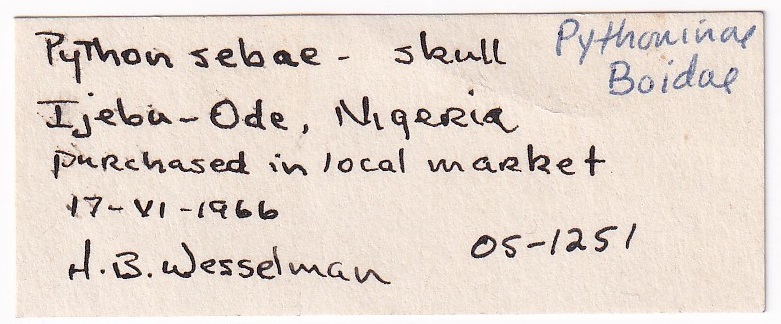 Python sebae - skull
Pythoninae
Boidae
Ijebu-Ode, Nigeria
purchased in local market
17-VI-1966
H.B. Wesselman
OS-1251